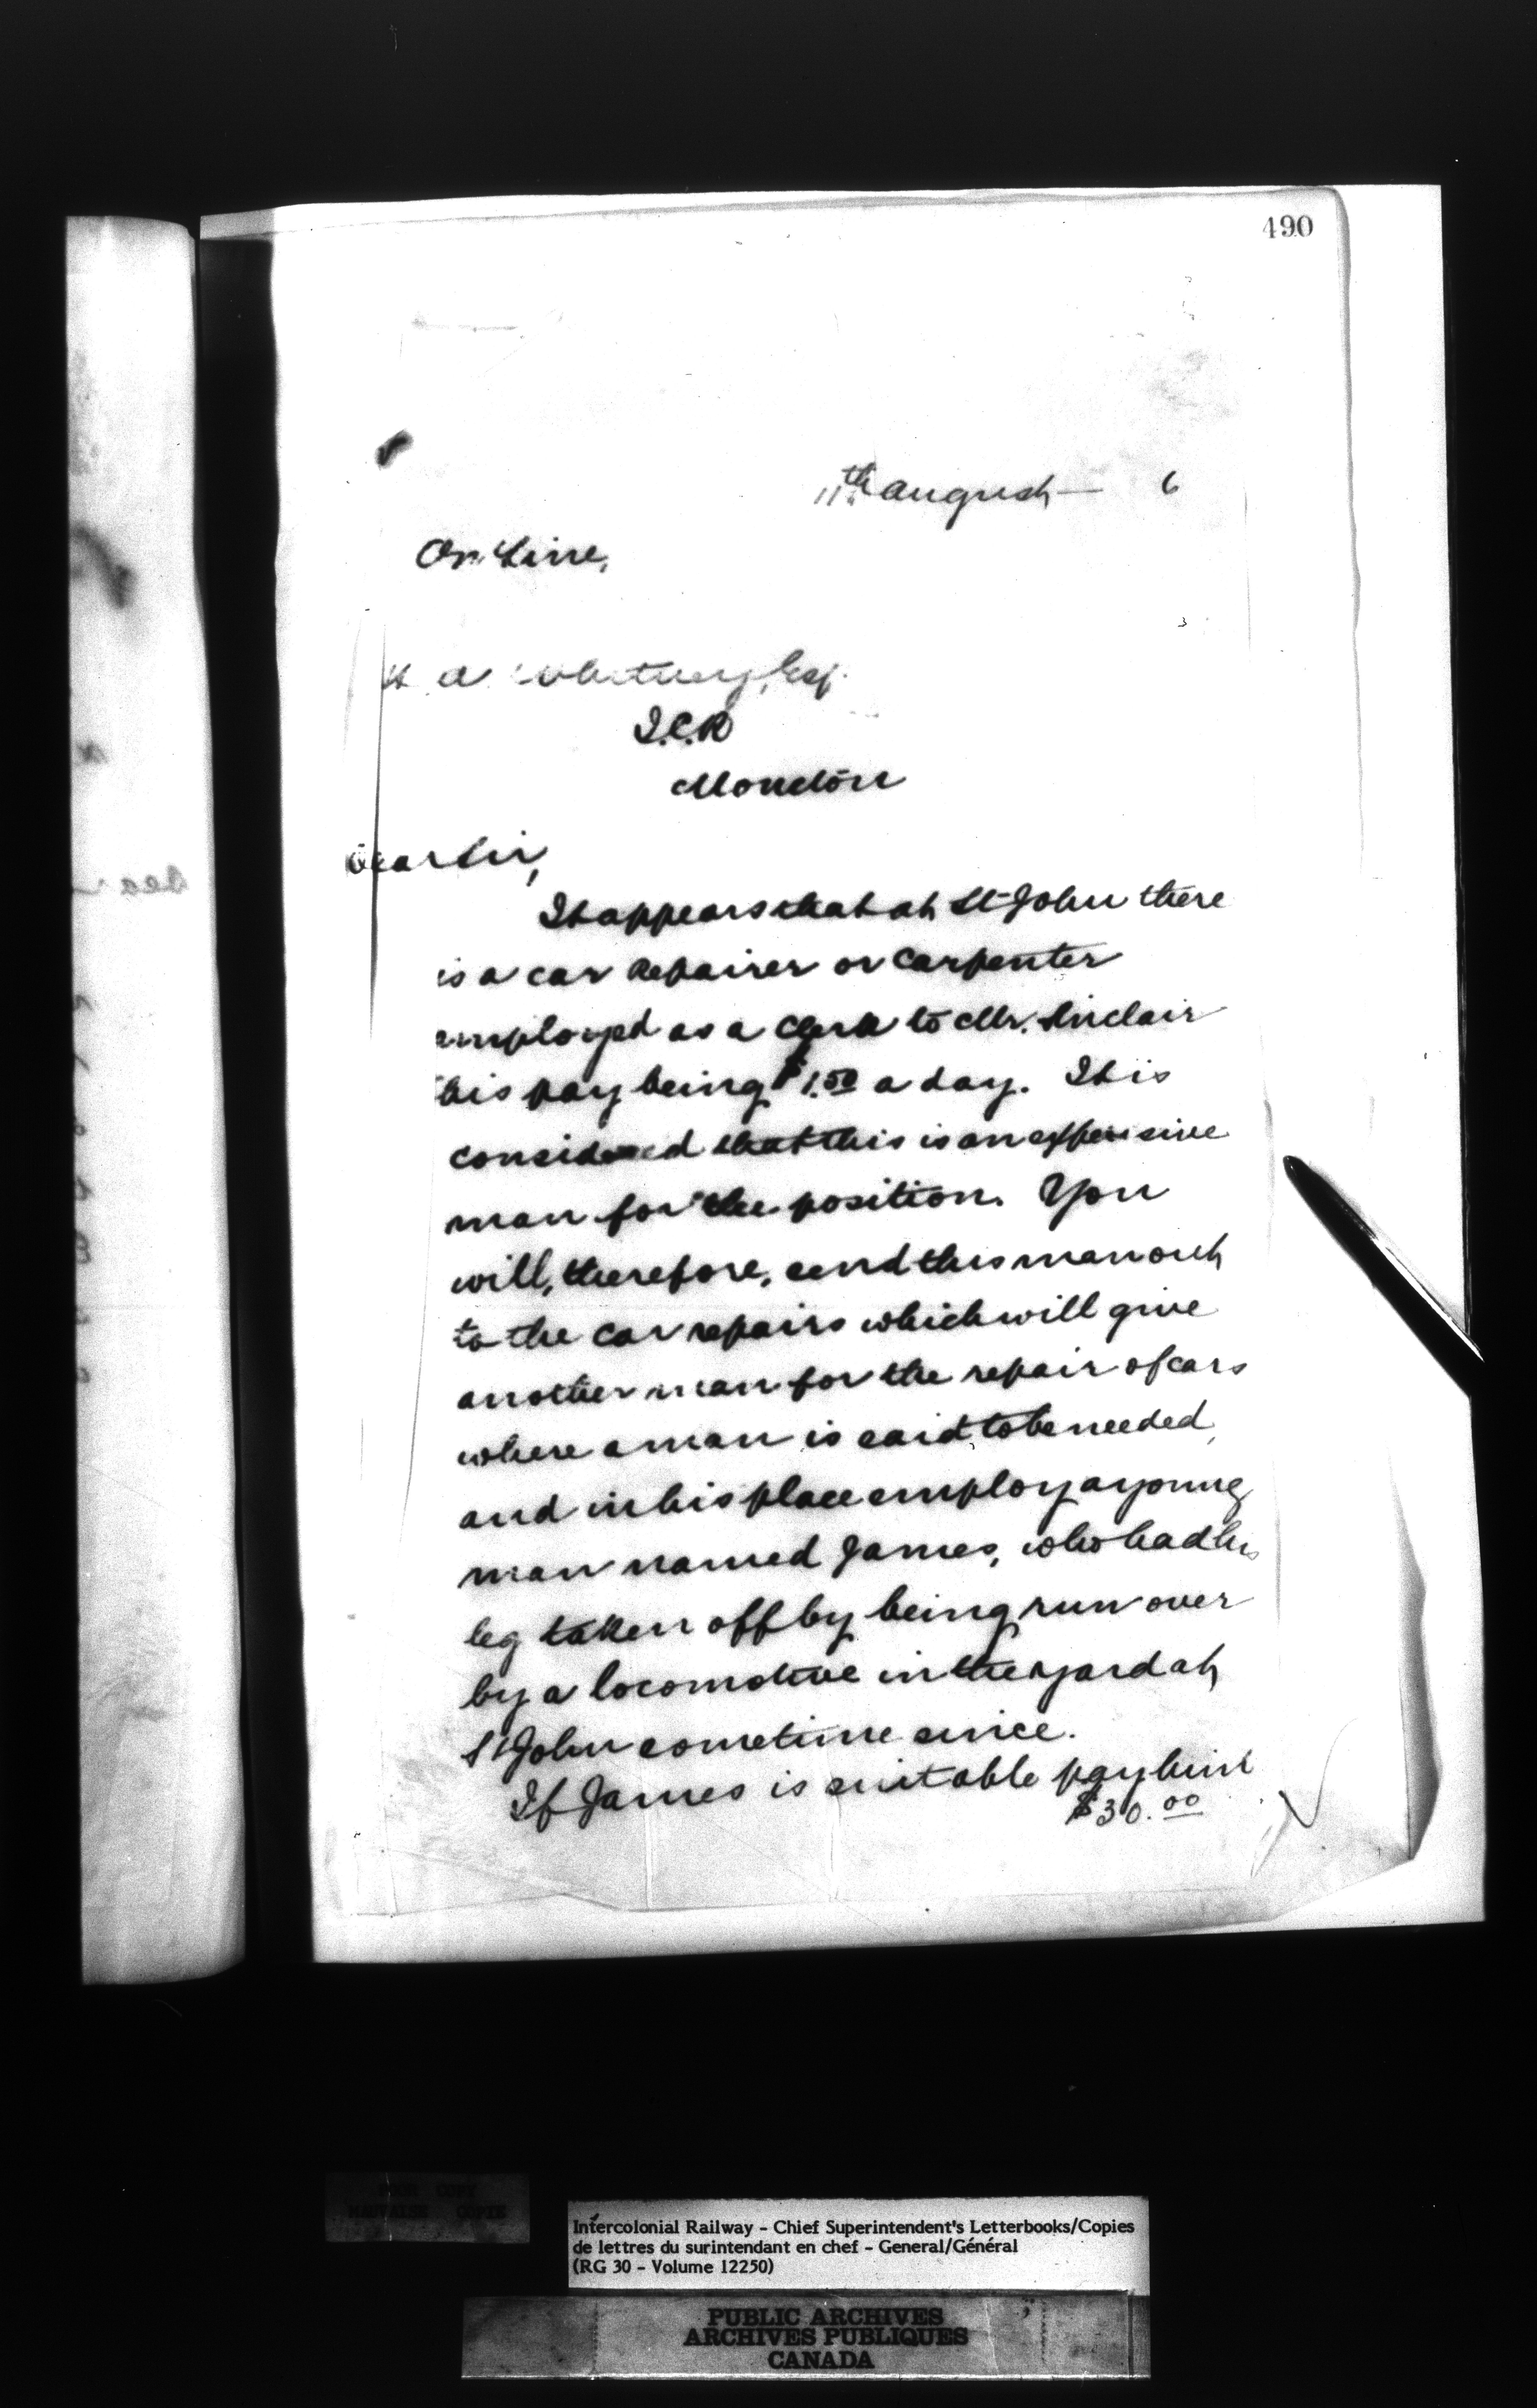 490
11th August 6
On Line,
H A Whitney, Esq.
I.C.R
Moncton
Dear Sir,
It appears that at St John there
is a car repairer or carpenter
employed as a clerk to Mr. Sinclair
his pay being $1.50 a day. It is
considered that this is an expensive
man for the position. You
will, therefore, send this man out
to the car repairs which will give
another man for the repair of cars
where a man is said to be needed,
and in his place employ a young
man named James, who had his
leg taken off by being run over
by a locomotive in the yard at
St John sometime since.
If James is suitable pay him
$30.00
POOR COPY
MAUVAISE COPIE
Intercolonial Railway - Chief Superintendent's Letterbooks/Copies
de lettres du surintendant en chef - General/Général
(RG 30 - Volume 12250)
PUBLIC ARCHIVES
ARCHIVES PUBLIQUES
CANADA